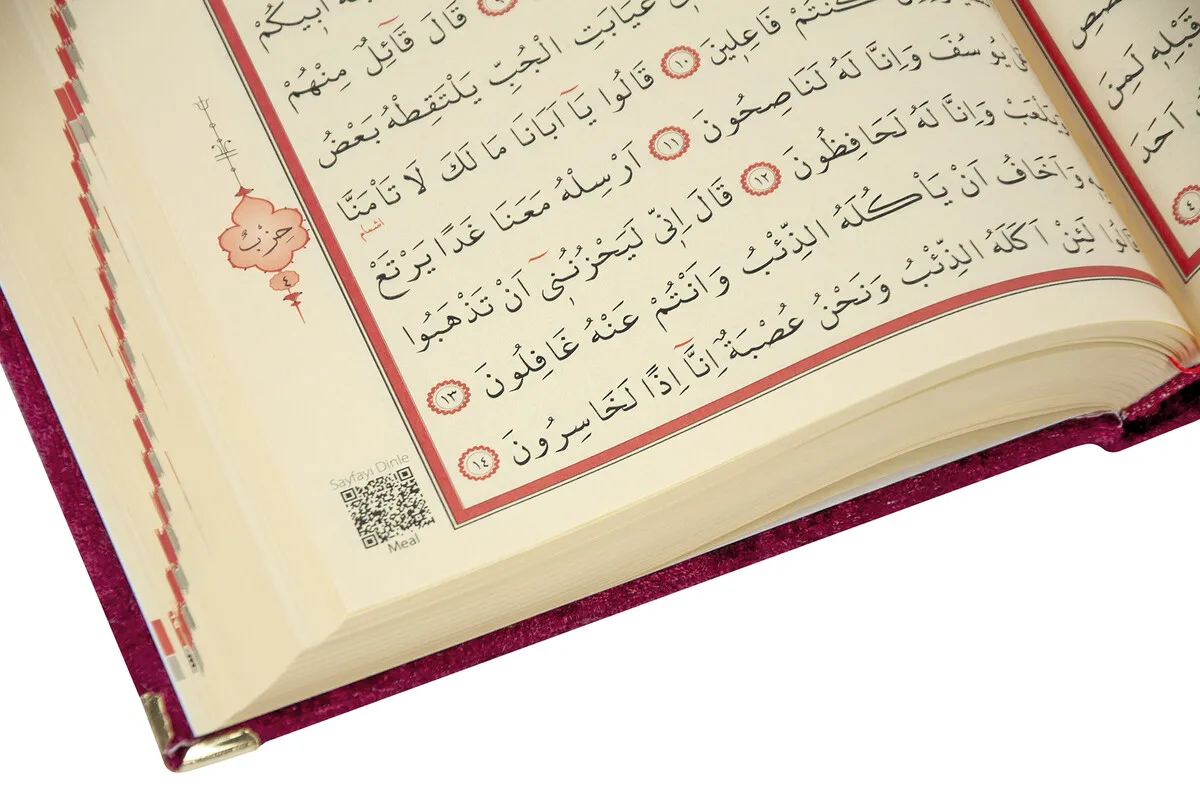 قَبْلِهٖ لَمِنَ
اَحَدَ
٤
اَبٖيكُمْ
قَالَ قَٓائِلٌ مِنْهُمْ
غَيَابَتِ الْجُبِّ يَلْتَقِطْهُ بَعْضُ
كُنْتُمْ فَاعِلٖينَ ١٠ قَالُوا يَٓا اَبَانَا مَا لَكَ لَا تَأْمَنَّا
اشمام
يُوسُفَ وَاِنَّا لَهُ لَنَاصِحُونَ ١١ اَرْسِلْهُ مَعَنَا غَدًا يَرْتَعْ
وَيَلْعَبْ وَاِنَّا لَهُ لَحَافِظُونَ ١٢ قَالَ اِنّٖى لَيَحْزُنُنٖٓى اَنْ تَذْهَبُوا
وَاَخَافُ اَنْ يَأْكُلَهُ الذِّئْبُ وَاَنْتُمْ عَنْهُ غَافِلُونَ ١٣
قَالُوا لَئِنْ اَكَلَهُ الذِّئْبُ وَنَحْنُ عُصْبَةٌ اِنَّٓا اِذًا لَخَاسِرُونَ ١٤
حِزْبُ
٤
Sayfayı Dinle
Meal